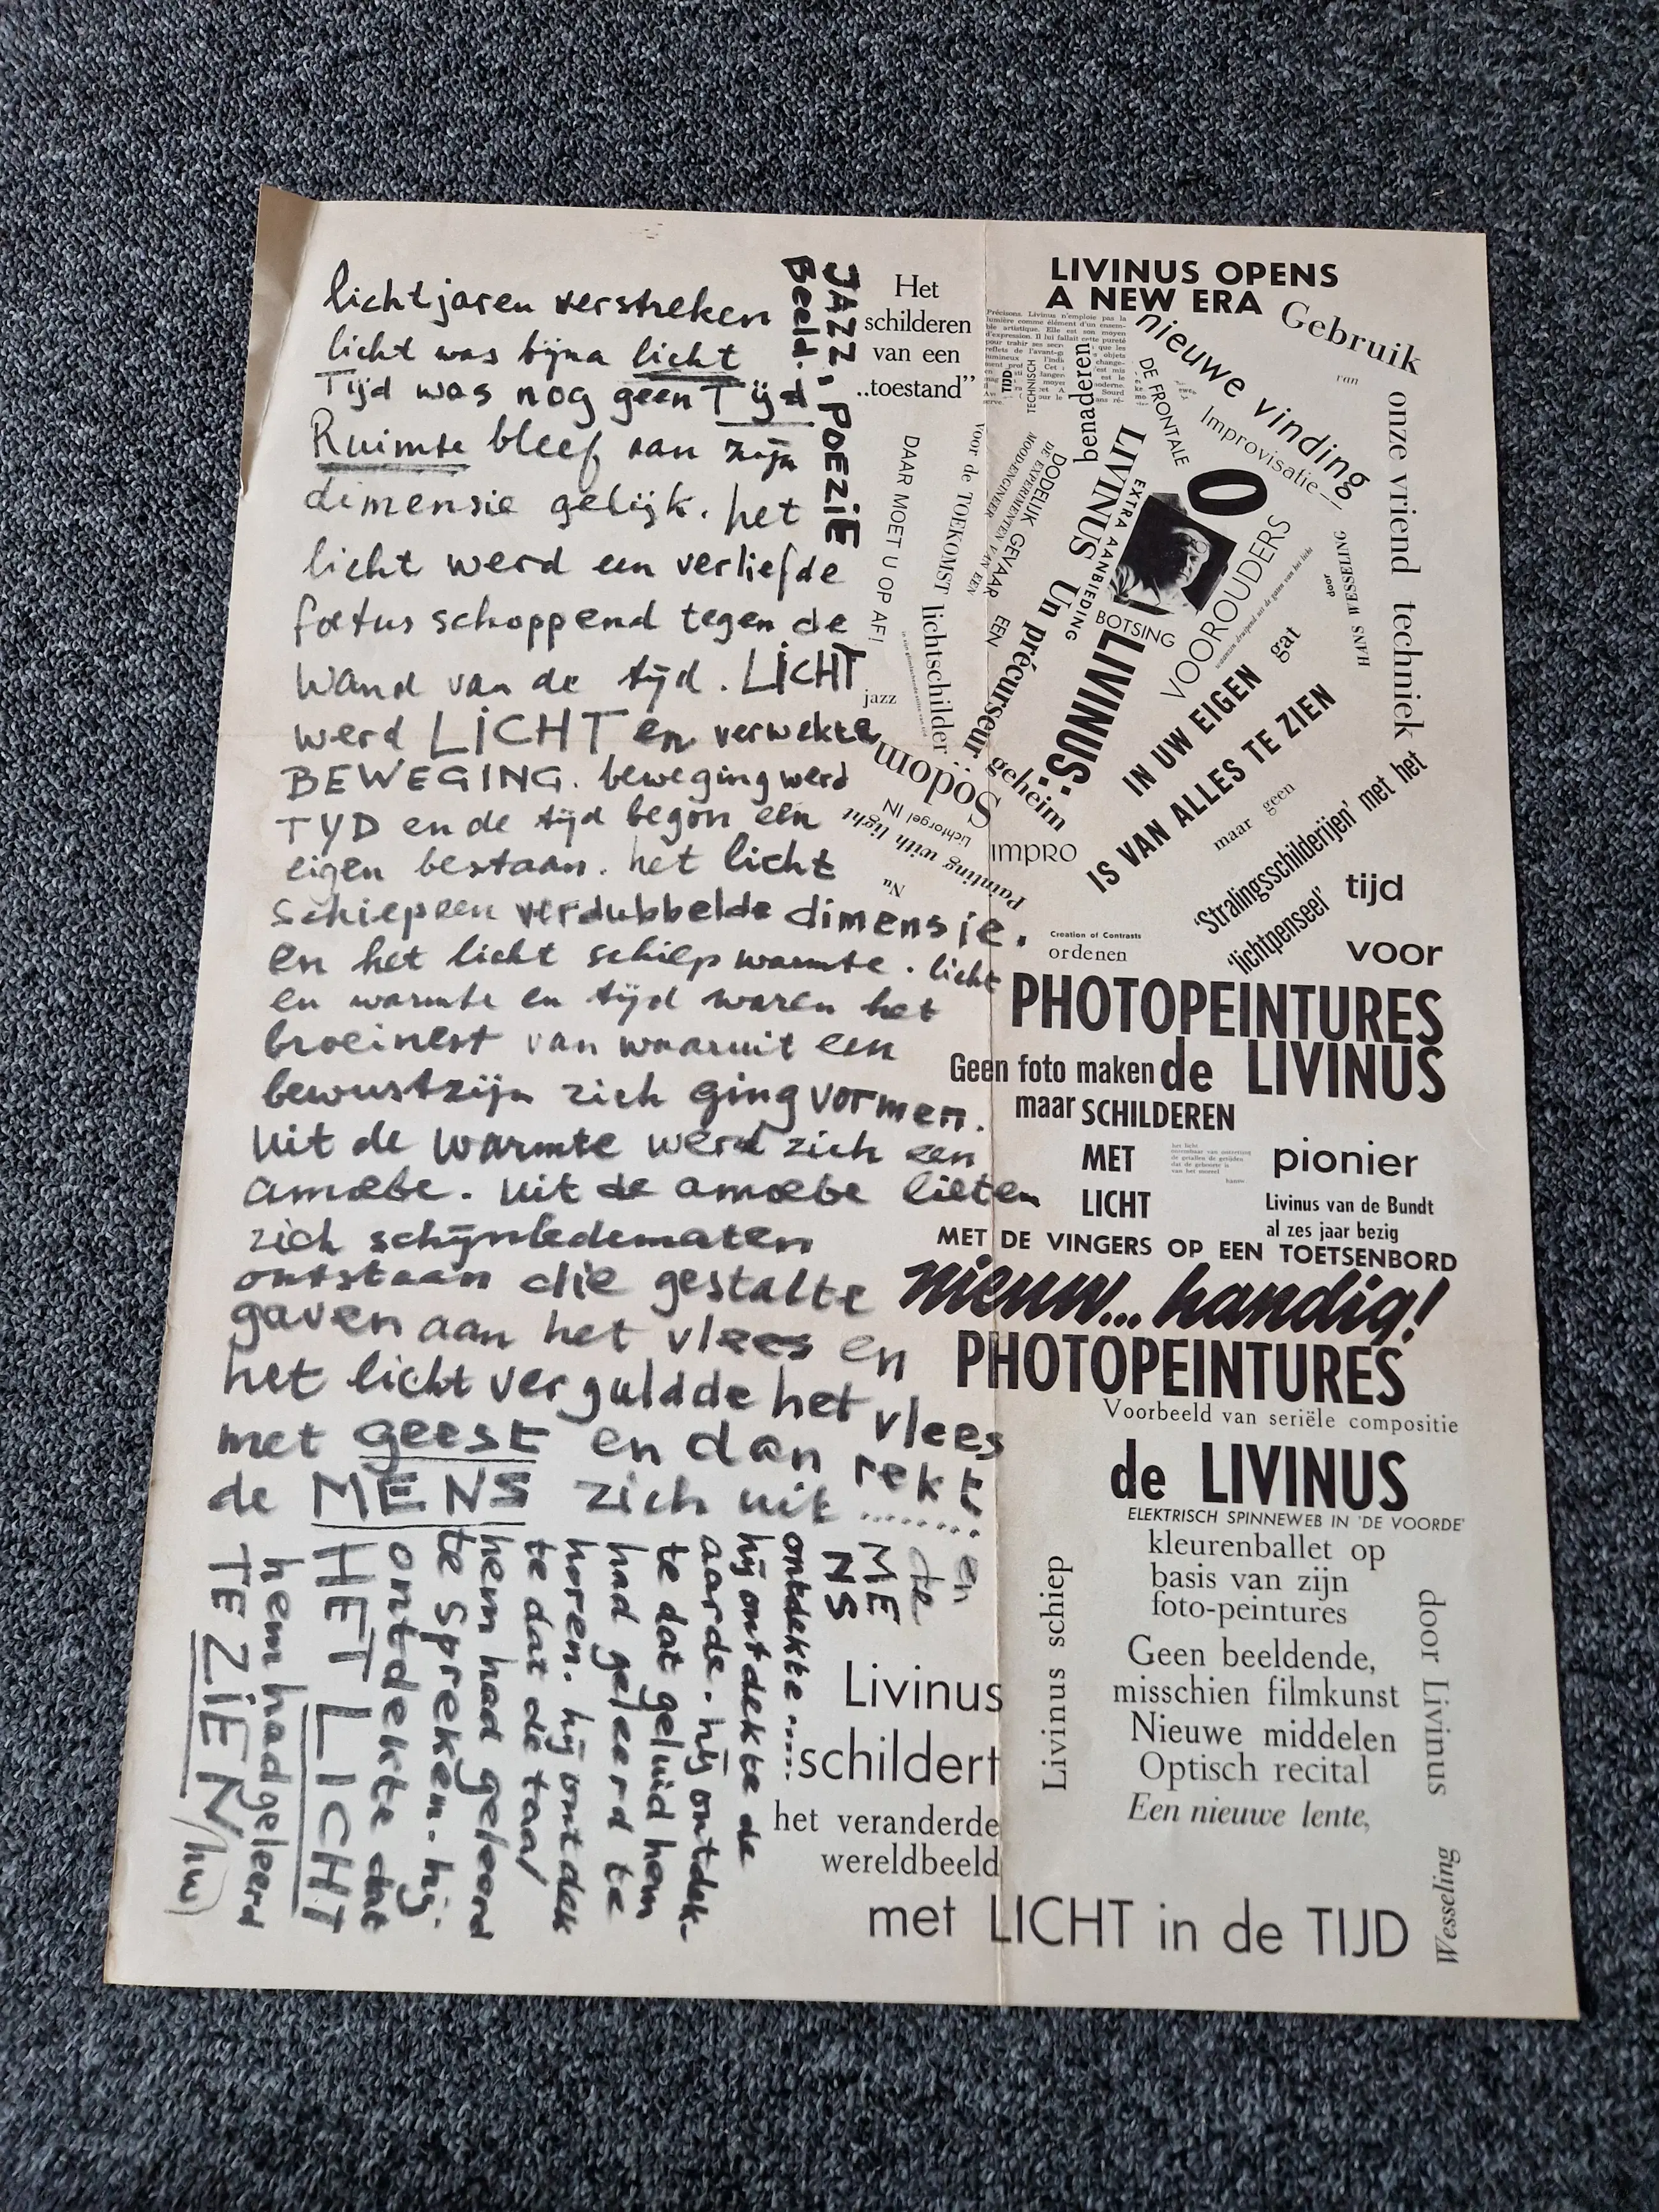 lichtjaren verstreken
licht was bijna licht
Tijd was nog geen Tijd
Ruimte bleef van zijn
dimensie gelijk. het
licht werd een verliefde
foetus schoppend tegen de
wand van de tijd. LICHT
werd LICHT en verwekte
BEWEGING. beweging werd
TYD en de tijd begon een
eigen bestaan. het licht
schiep een verdubbelde dimensie.
en het licht schiep warmte. licht
en warmte en tijd waren het
broeinest van waaruit een
bewustzijn zich ging vormen.
uit de warmte werd zich een
amoebe. uit de amoebe lieten
zich schijnledematen
ontstaan die gestalte
gaven aan het vlees en
het licht verguldde het vlees
met geest en dan rekt
de MENS zich uit ........
en
de
ME
NS
ontdekte....:
hij ontdekte de
aarde. hij ontdek-
te dat geluid hem
had geleerd te
horen. hij ontdek
te dat de taal
hem had geleerd
te spreken. hij
ontdekte dat
HET LICHT
hem had geleerd
TE ZIEN
(hw)
JAZZ, POEZIE
Beeld.
Het
schilderen
van een
..toestand”
LIVINUS OPENS
A NEW ERA
Gebruik
van
onze vriend techniek
nieuwe vinding
Improvisatie—
DE FRONTALE
TIJD
TECHNISCH
benaderen
LIVINUS
EXTRA AANBIEDING
O
BOTSING
VOOROUDERS
door
HANS WESSELING
DAAR MOET U OP AF!
voor de TOEKOMST
MOOD-ENGINEER
DE EXPERIMENTEN VAN EEN
DODELIJK GEVAAR
EEN
Un précurseur
LIVINUS:
lichtschilder..
jazz
Sodom
geheim
Lichtorgel IN
Painting with light
Nu
IMPRO
IN UW EIGEN gat
IS VAN ALLES TE ZIEN
maar geen
'Stralingsschilderijen' met het
'lichtpenseel'
tijd
voor
Creation of Contrasts
ordenen
PHOTOPEINTURES
de LIVINUS
Geen foto maken
maar SCHILDEREN
MET
LICHT
pionier
Livinus van de Bundt
al zes jaar bezig
MET DE VINGERS OP EEN TOETSENBORD
nieuw... handig!
PHOTOPEINTURES
Voorbeeld van seriële compositie
de LIVINUS
ELEKTRISCH SPINNEWEB IN 'DE VOORDE'
kleurenballet op
basis van zijn
foto-peintures
Livinus schiep
Geen beeldende,
misschien filmkunst
Nieuwe middelen
Optisch recital
Een nieuwe lente,
door Livinus
Wesseling
Livinus
schildert
het veranderde
wereldbeeld
met LICHT in de TIJD